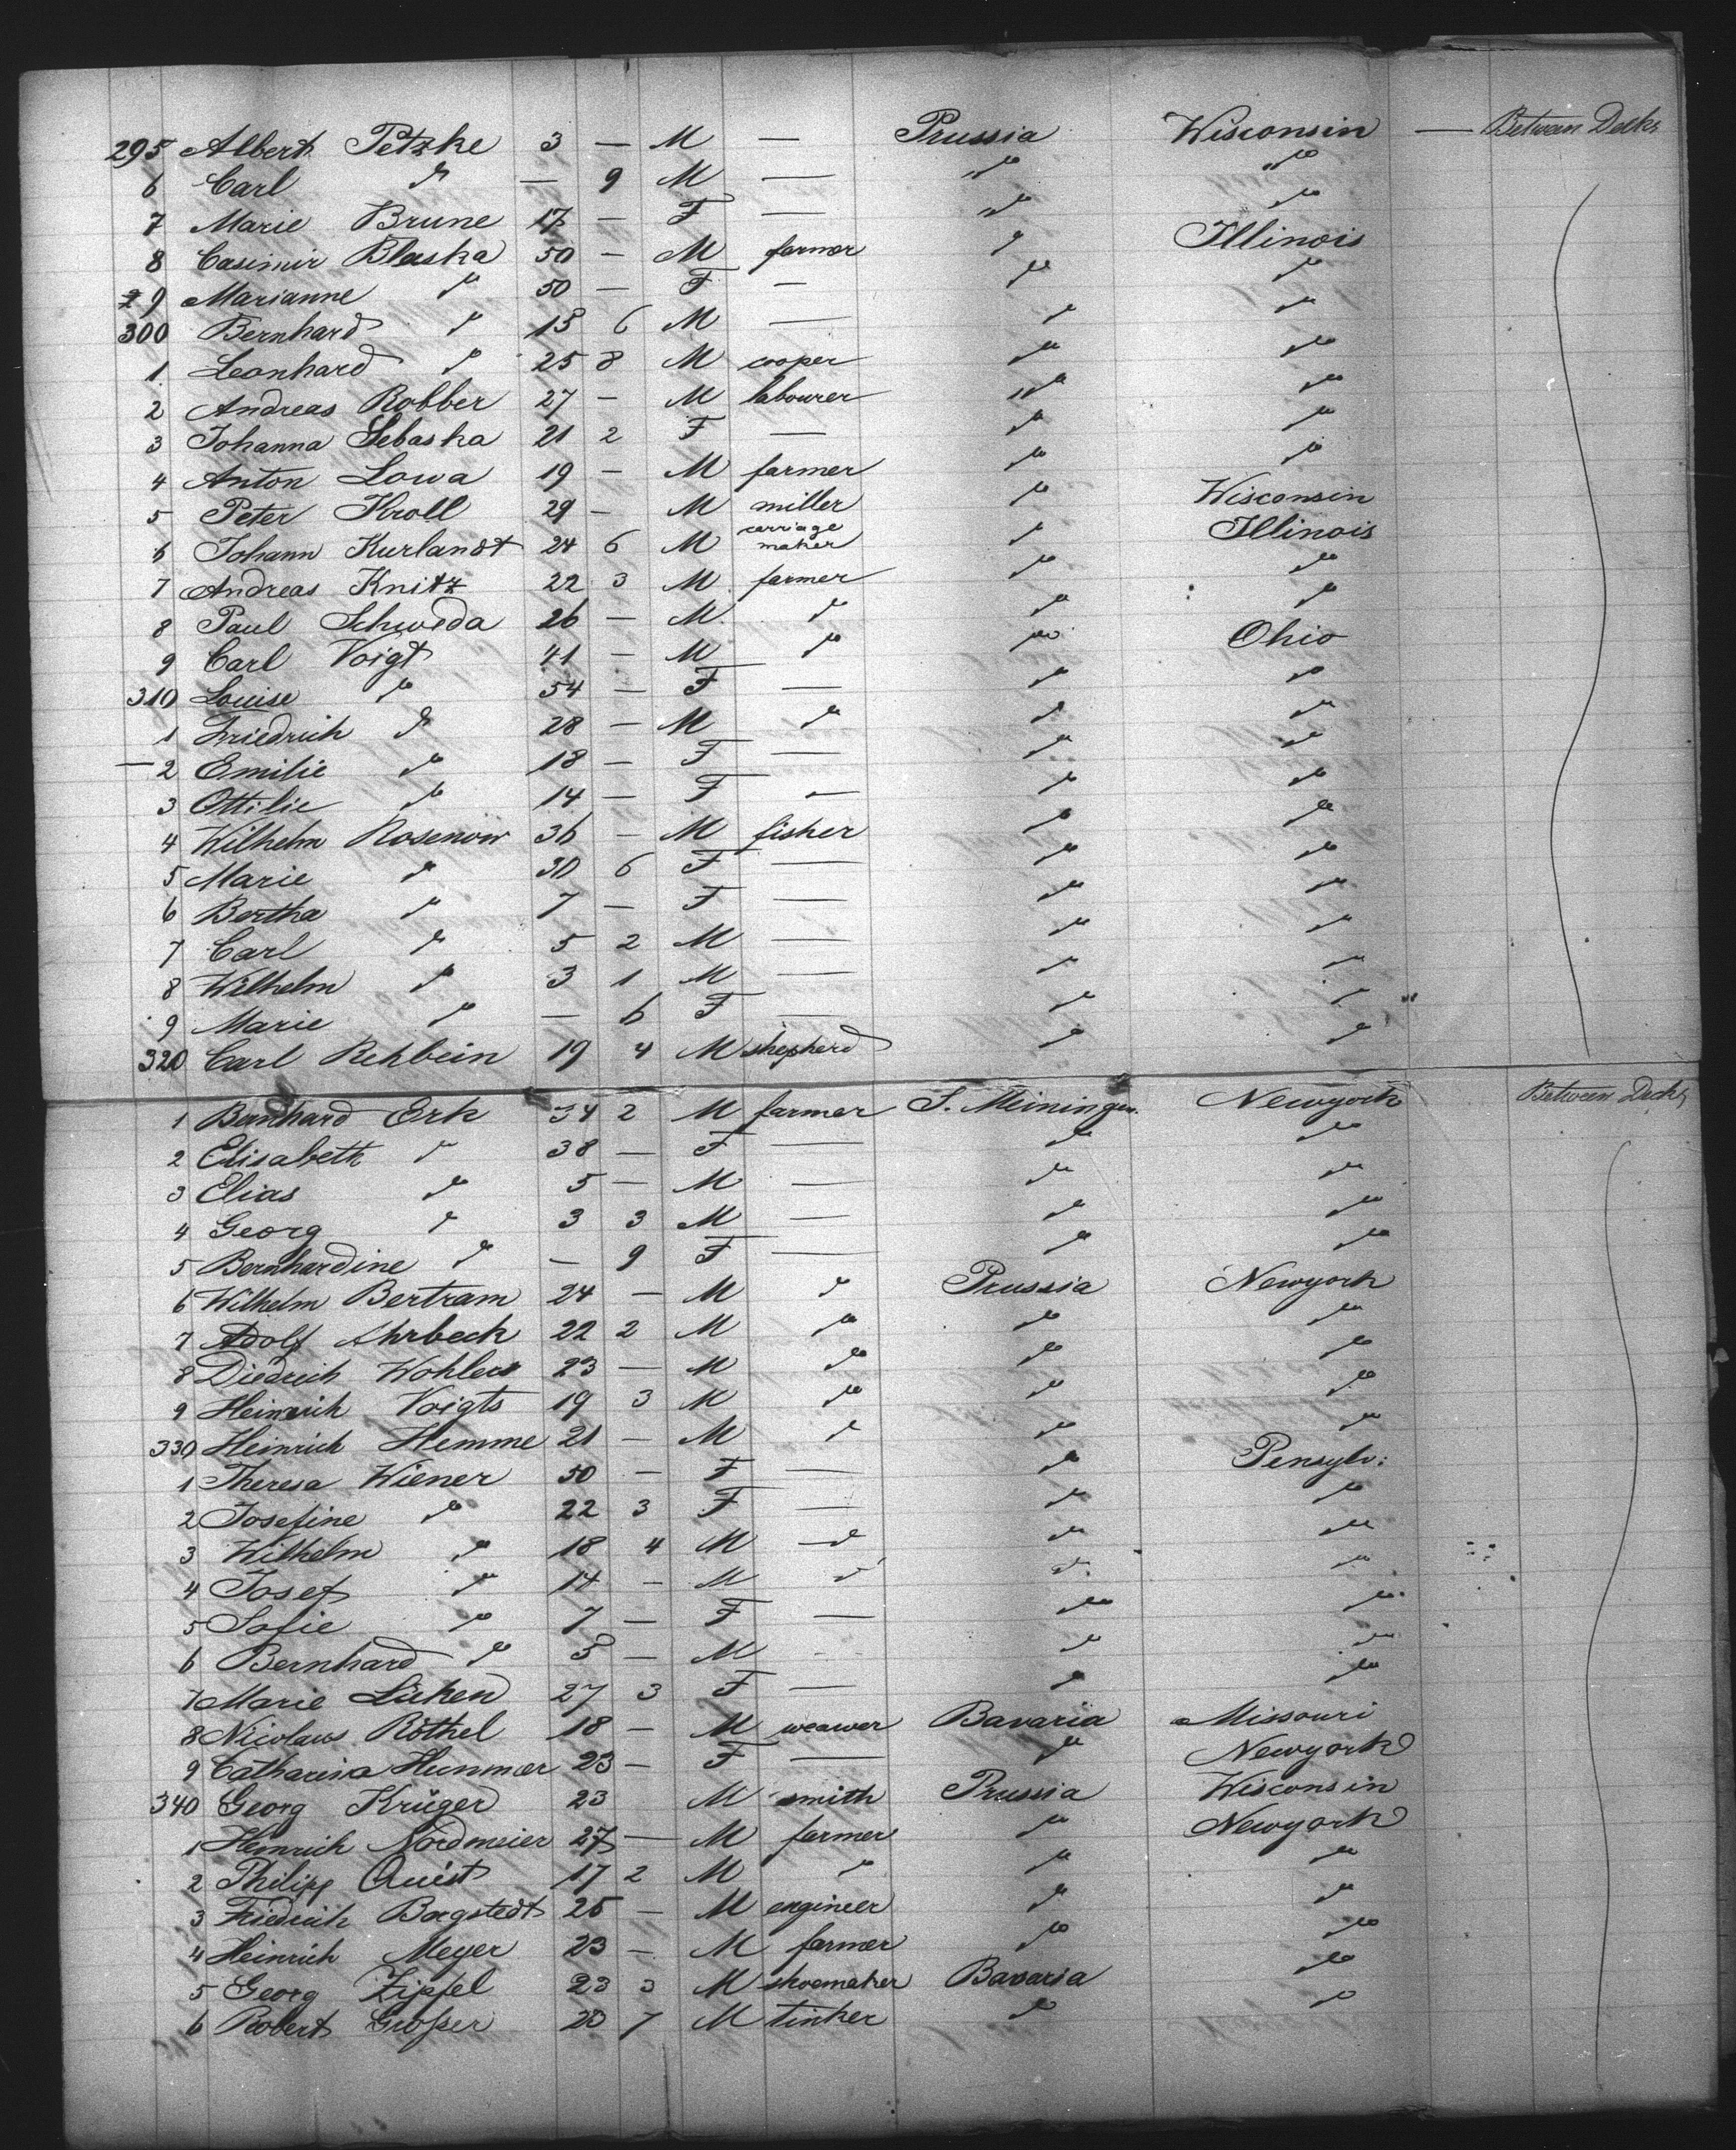 295 Albert Petzke 3 — M — Prussia Wisconsin — Between Decks
6 Carl do — 9 M — do do
7 Marie Brune 17 — F — do do
8 Casimir Blaska 50 — M farmer do Illinois
29 Marianne do 50 — F — do do
300 Bernhard do 15 6 M — do do
1 Leonhard do 25 8 M cooper do do
2 Andreas Robber 27 — M labourer do do
3 Johanna Sebaska 21 2 F — do do
4 Anton Lowa 19 — M farmer do do
5 Peter Kroll 29 — M miller do Wisconsin
6 Johann Kurlandt 24 6 M carriage maker do Illinois
7 Andreas Knitz 22 3 M farmer do do
8 Paul Schweda 26 — M do do do
9 Carl Voigt 41 — M do do Ohio
310 Louise do 54 — F — do do
1 Friedrich do 28 — M do do do
— 2 Emilie do 18 — F — do do
3 Ottilie do 14 — F — do do
4 Wilhelm Rosenow 36 — M fisher do do
5 Marie do 30 6 F — do do
6 Bertha do 7 — F — do do
7 Carl do 5 2 M — do do
8 Wilhelm do 3 1 M — do do
9 Marie do — 6 F — do do
320 Carl Rehbein 19 4 M shepherd do do
1 Bernhard Erk 34 2 M farmer S. Meiningen. Newyork Between Decks
2 Elisabeth do 38 — F — do do
3 Elias do 5 — M — do do
4 Georg do 3 3 M — do do
5 Bernhardine do — 9 F — do do
6 Wilhelm Bertram 24 — M do Prussia Newyork
7 Adolf Ahrbeck 22 2 M do do do
8 Diedrich Wohlers 23 — M do do do
9 Heinrich Voigts 19 3 M do do do
330 Heinrich Hemme 21 — M do do do
1 Theresa Wiener 50 — F — do Pensylv:
2 Josefine do 22 3 F — do do
3 Wilhelm do 18 4 M do do do
4 Josef do 14 — M do do do
5 Sofie do 7 — F — do do
6 Bernhard do 5 — M do do
7 Marie Lüken 27 3 F — do do
8 Nicolaus Röthel 18 — M weawer Bavaria Missouri
9 Catharina Hummer 23 — F — do Newyork
340 Georg Krüger 23 M smith Prussia Wisconsin
1 Heinrich Nordmeier 27 — M farmer do Newyork
2 Philipp Quist 17 2 M do do do
3 Friedrich Borgstedt 25 — M engineer do do
4 Heinrich Meyer 23 — M farmer do do
5 Georg Zipfel 23 3 M shoemaker Bavaria do
6 Robert Großer 20 7 M tinker do do